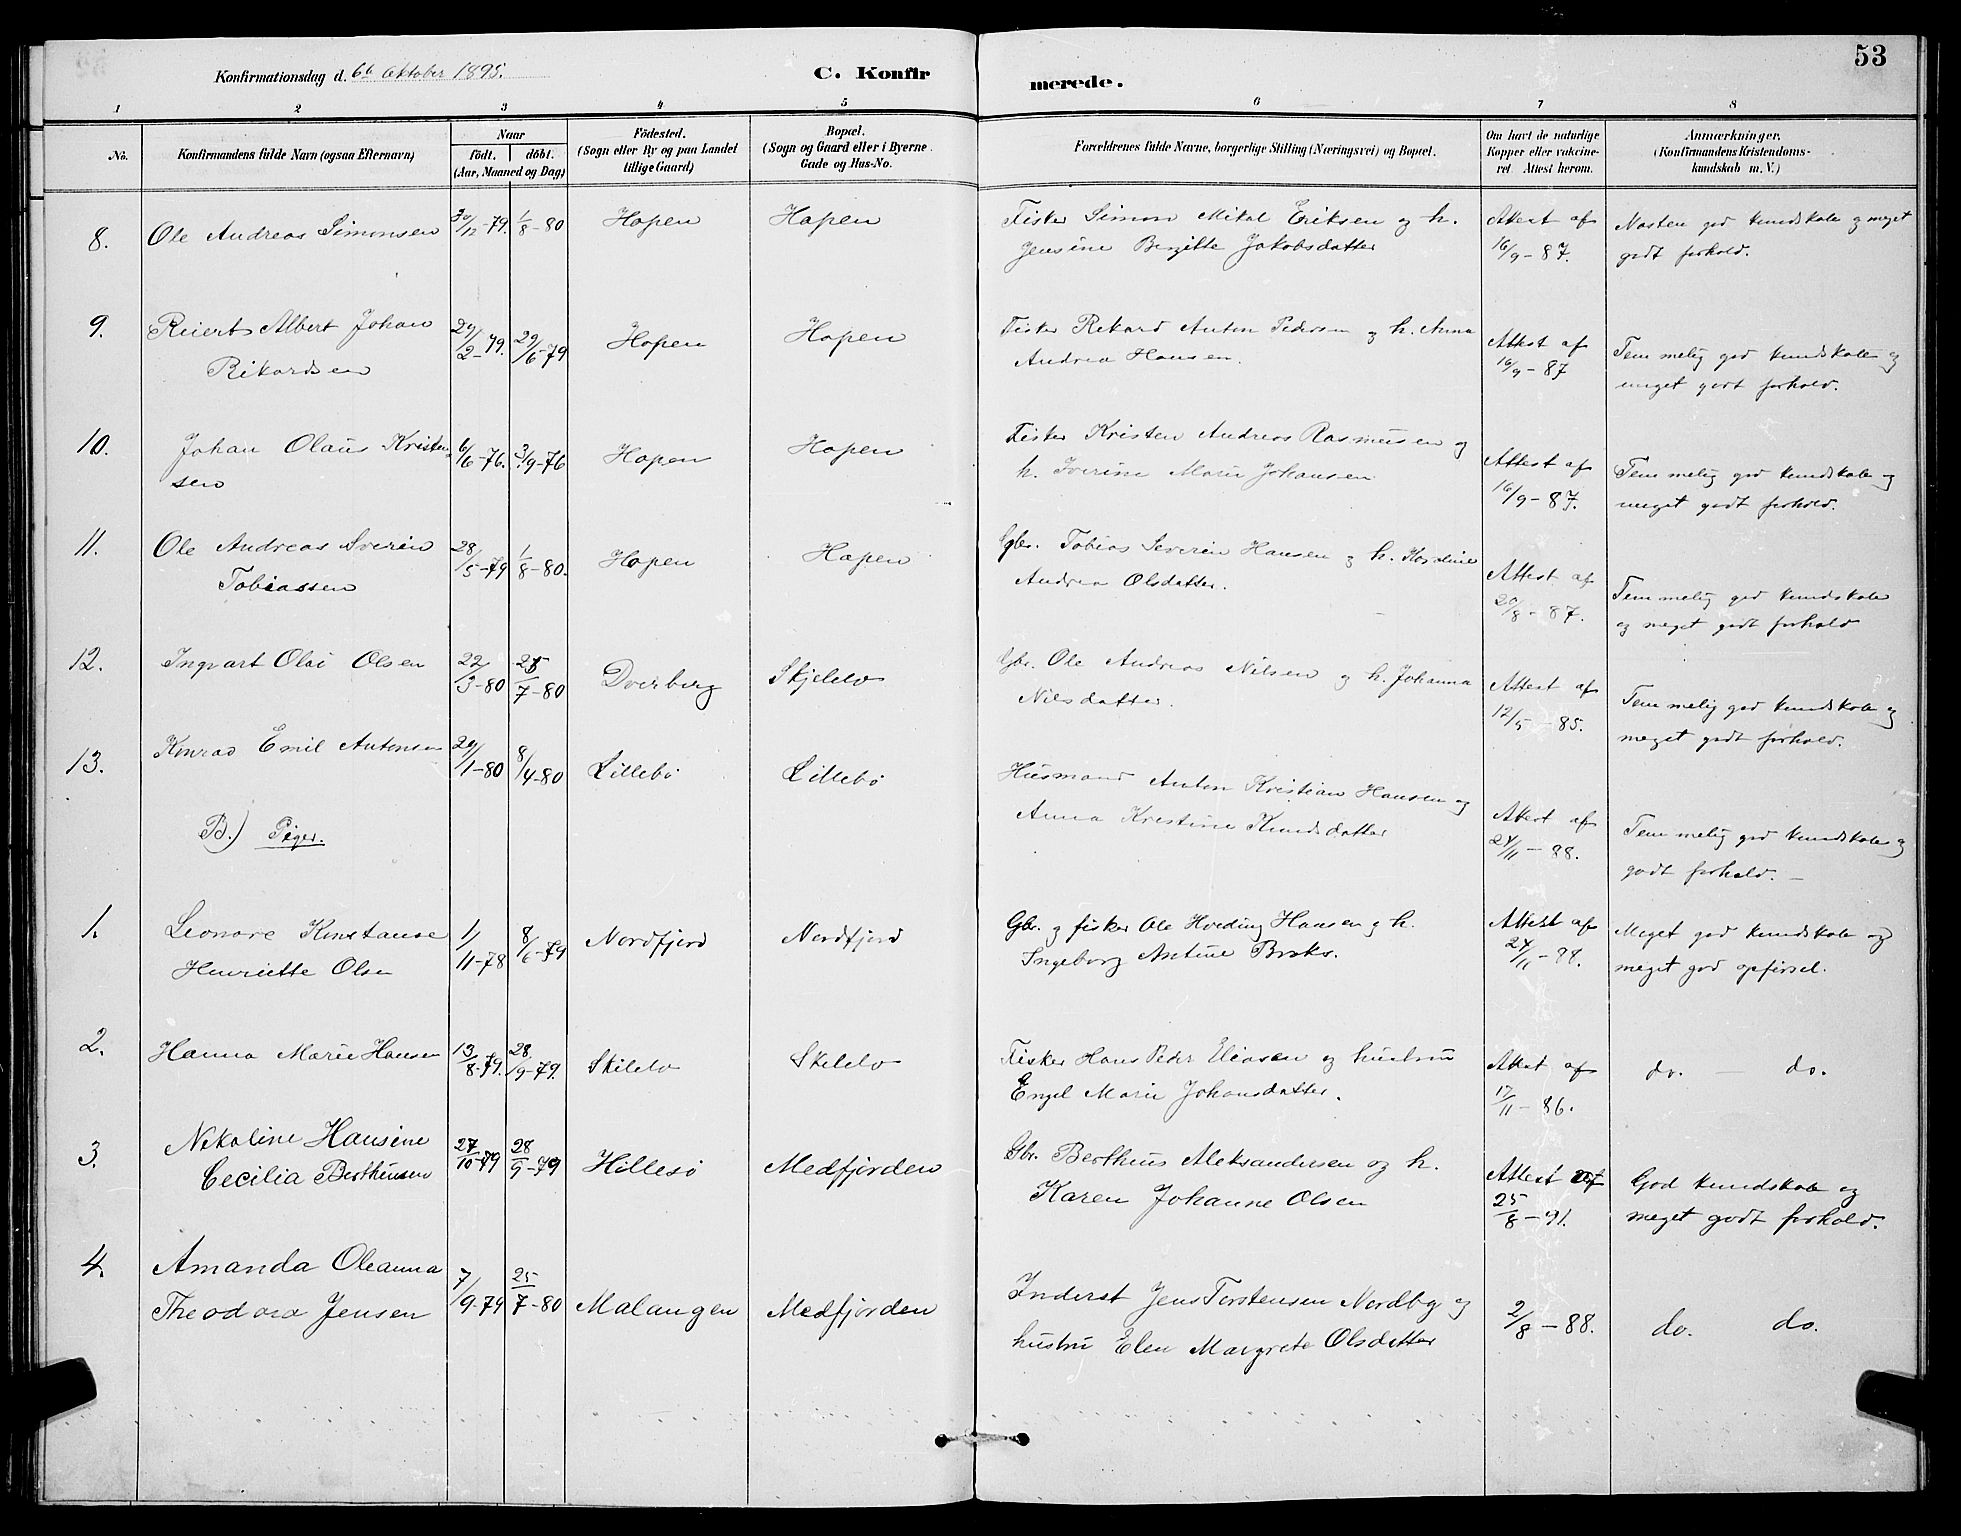 53
Konfirmationsdag d. 6te Oktober 1895.
C. Konfirmerede.
1 2 3 4 5 6 7 8
No.
Konfirmandens fulde Navn (ogsaa Efternavn)
Naar
födt. döbt.
(Aar, Maaned og Dag)
Födested.
(Sogn eller By og paa Landet
tillige Gaard)
Bopæl.
(Sogn og Gaard eller i Byerne
Gade og Hus-No.
Forældrenes fulde Navne, borgerlige Stilling (Næringsvei) og Bopæl.
Om havt de naturlige
Kopper eller vakcine-
ret. Attest herom.
Anmærkninger.
(Konfirmandens Kristendoms-
kundskab m. V.)
8. Ole Andreas Simonsen 30/12-79. 1/8-80 Hopen Hopen Fisker Simon Mikal Eriksen og h. Attest af Næsten god kundskab og meget
Jensine Bergitte Jakobsdatter 16/9-87. godt forhold.
9. Reierts Albert Johan 29/2-79. 29/6-79 Hopen Hopen Fisker Rikard Anton Pedersen og h. Anna Attest af Temmelig god kundskab og
Rikardsen Andrea Hansen. 16/9-87 meget godt forhold.
10. Johan Olaus Kristen 6/6-76. 3/9-76 Hopen Hopen Fisker Kristen Andreas Rasmussen og Attest af Temmelig god kundskab og
sen h. Iverine Marie Johansen 16/9-87. meget godt forhold.
11. Ole Andreas Sverin 28/5-79 1/8-80. Hopen Hopen Gbr. Tobias Severin Hansen og h. Attest af Temmelig god kundskab
Tobiassen Andrea Olsdatter. 20/8-87. og meget godt forhold
12. Ingvart Olai Olsen 22/3-80 25/7-80 Dverberg Skjelelv Gbr. Ole Andreas Nilsen og h. Johanna Attest af Temmelig god kundskab og
Nilsdatter. 12/5-85. meget godt forhold.
13. Konrad Emil Antonsen 29/1-80 8/4-80 Lillebö Lillebö Husmand Anton Kristian Hansen og Attest af Temmelig god kundskab og
Anna Kristine Knudsdatter 24/11-88. godt forhold. —
B.) Piger.
1. Leonore Konstanse 1/11-78 8/6-79 Nordfjord Nordfjord Gbr. og fisker Ole Hveding Hansen og h. Attest af Meget god kundskab og
Henriette Olsen Ingeborg Antine Broks. 24/11-88. meget god opförsel.
2. Hanna Marie Hansen 13/8-79. 28/9-79. Skilelv Skilelv Fisker Hans Peder Eliasen og hustru Attest af do. — do.
Engel Marie Johansdatter. 17/11-86.
3. Nikoline Hansine 27/10-79 28/9-79 Hillesö Medfjorden Gbr. Berthius Aleksandersen og h. Attest af God kundskab og
Cecilia Berthiusen Karen Johanne Olsen 25/8-91. meget godt forhold.
4. Amanda Oleanna 7/9-79 25/7-80 Malangen Medfjorden Inderst Jens Torstensen Nordby og 2/8-88. do. do.
Theodora Jensen hustru Elen Margrete Olsdatter